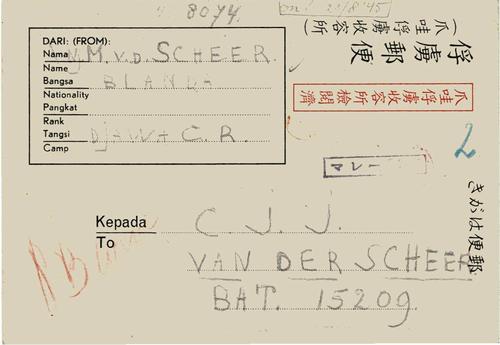 8074.
DARI: (FROM):
Nama M. v. D. SCHEER.
Name
Bangsa BLANDA
Nationality
Pangkat
Rank
Tangsi DJAWA C. R.
Camp
俘虜郵便
(爪哇俘虜收容所)
爪哇俘虜收容所檢閱濟
2
郵便はがき
Kepada C. J. J.
To
VAN DER SCHEER
BAT. 15209.